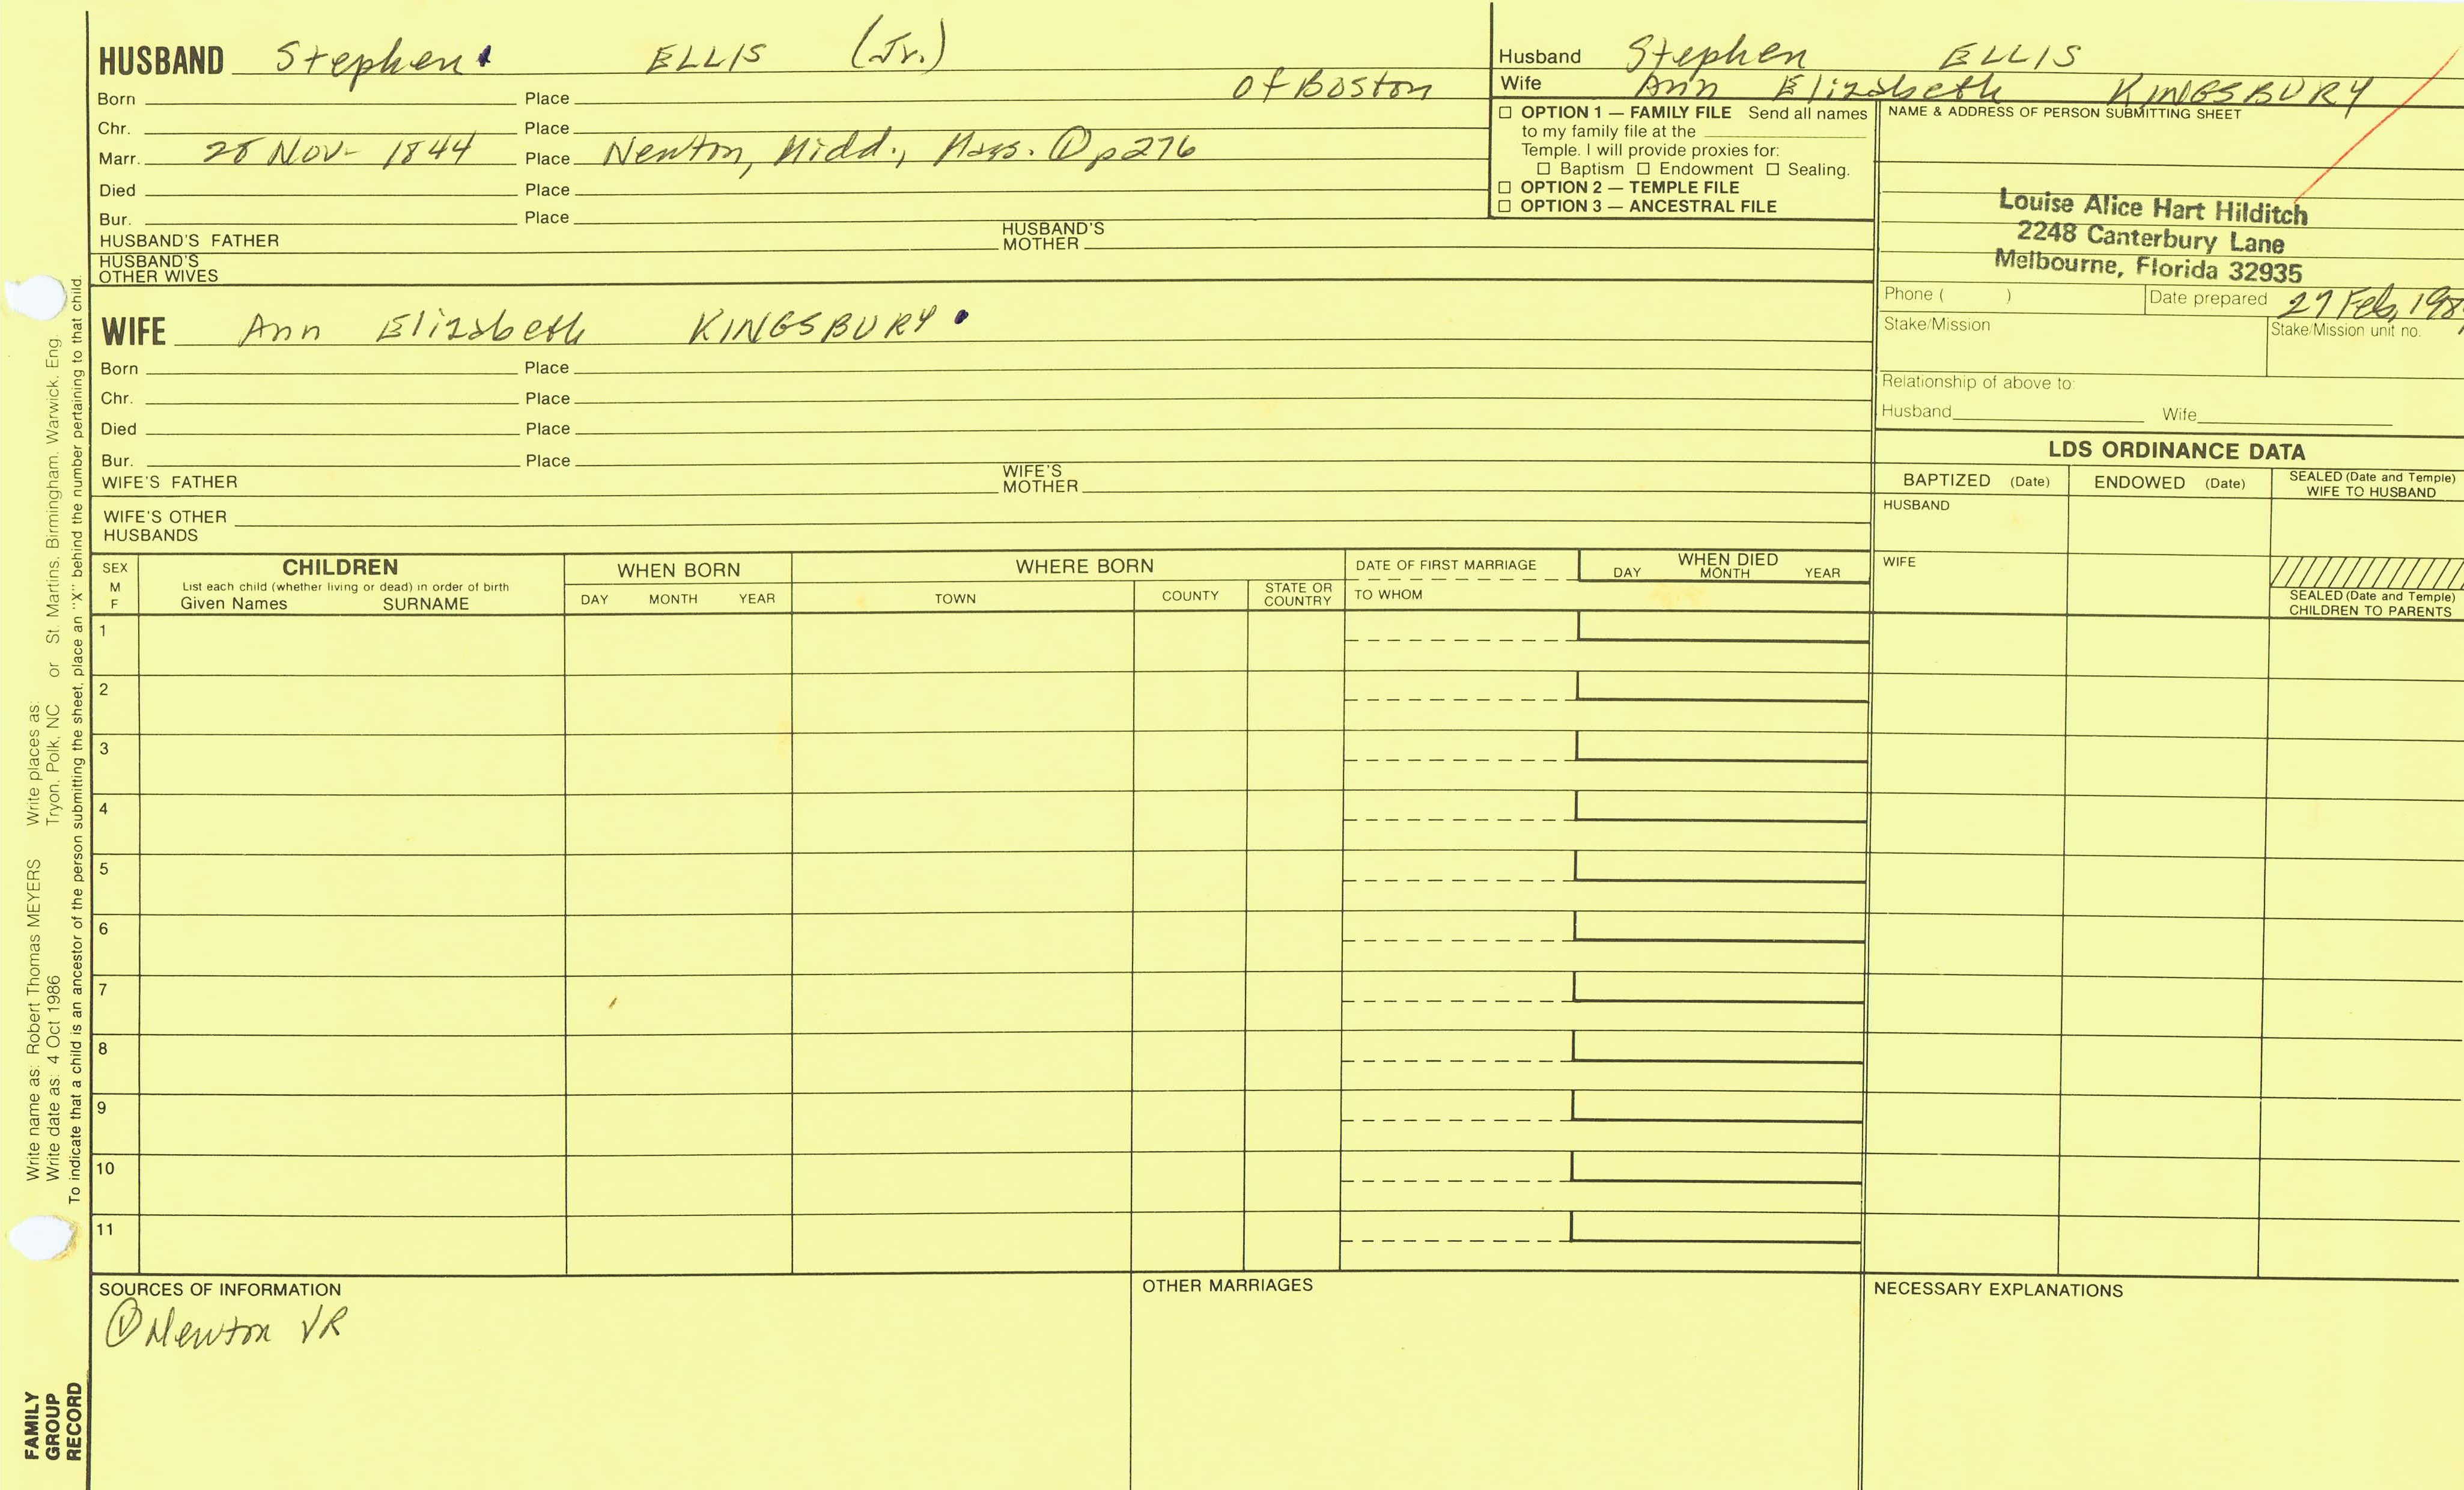 HUSBAND Stephen ELLIS (Jr.)
Born Place of Boston
Chr. Place
Marr. Nov- 1844 Place Newton, Midd., Mass. ① p276
Died Place
Bur. Place
HUSBAND'S FATHER HUSBAND'S MOTHER
HUSBAND'S OTHER WIVES
Husband Stephen ELLIS
Wife Ann Elizabeth KINGSBURY
☐ OPTION 1 — FAMILY FILE Send all names
to my family file at the
Temple. I will provide proxies for:
☐ Baptism ☐ Endowment ☐ Sealing.
☐ OPTION 2 — TEMPLE FILE
☐ OPTION 3 — ANCESTRAL FILE
NAME & ADDRESS OF PERSON SUBMITTING SHEET
Louise Alice Hart Hilditch
2248 Canterbury Lane
Melbourne, Florida 32935
Phone ( ) Date prepared 27 Feb,
Stake/Mission Stake/Mission unit no.
Relationship of above to:
Husband Wife
WIFE Ann Elizabeth KINGSBURY
Born Place
Chr. Place
Died Place
Bur. Place
WIFE'S FATHER WIFE'S MOTHER
WIFE'S OTHER HUSBANDS
LDS ORDINANCE DATA
BAPTIZED (Date) ENDOWED (Date) SEALED (Date and Temple) WIFE TO HUSBAND
HUSBAND
WIFE
SEALED (Date and Temple)
CHILDREN TO PARENTS
SEX M F
CHILDREN
List each child (whether living or dead) in order of birth
Given Names SURNAME
WHEN BORN
DAY MONTH YEAR
WHERE BORN
TOWN COUNTY STATE OR COUNTRY
DATE OF FIRST MARRIAGE
TO WHOM
WHEN DIED
DAY MONTH YEAR
1
2
3
4
5
6
7
8
9
10
11
SOURCES OF INFORMATION
① Newton VR
OTHER MARRIAGES
NECESSARY EXPLANATIONS
Write name as: Robert Thomas MEYERS Write places as:
Write date as: 4 Oct 1986 Tryon, Polk, NC or St. Martins, Birmingham, Warwick, Eng.
To indicate that a child is an ancestor of the person submitting the sheet, place an "X" behind the number pertaining to that child.
FAMILY
GROUP
RECORD